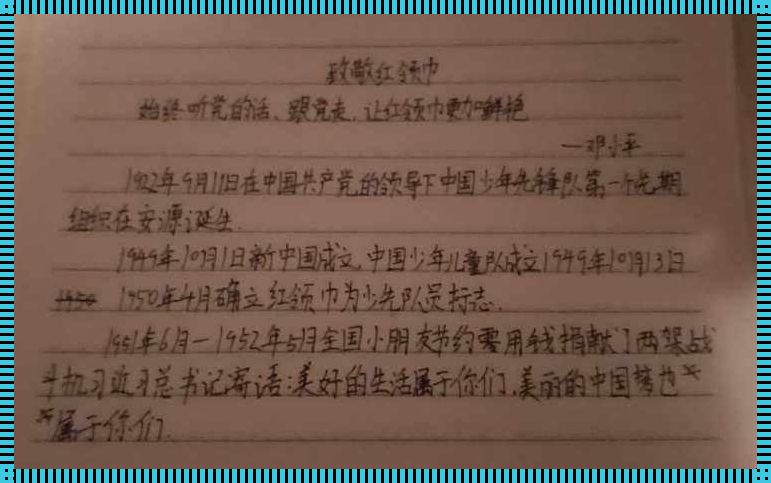 致敬红领巾
始终听党的话、跟党走,让红领巾更加鲜艳
—邓小平
1922年9月11日在中国共产党的领导下中国少年先锋队第一个先期
组织在安源诞生.
1949年10月1日新中国成立,中国少年儿童队成立1949年10月13日
1950 1950年4月确立红领巾为少先队员标志.
1951年6月—1952年5月全国小朋友节约零用钱捐献了两架战
斗机习近习总书记寄语:美好的生活属于你们,美丽的中国梦也
属于你们.